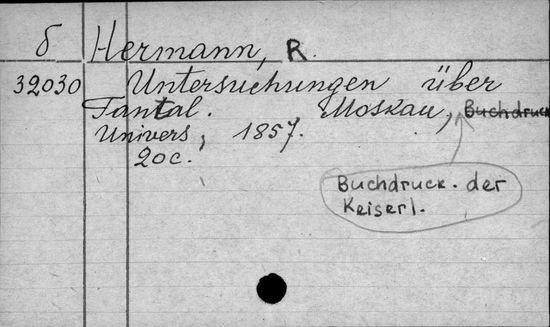 δ Hermann, R.
32030 Untersuchungen über
Tantal. Moskau, Buchdruck
Univers, 1857.
20c.
Buchdruck. der
Keiserl.